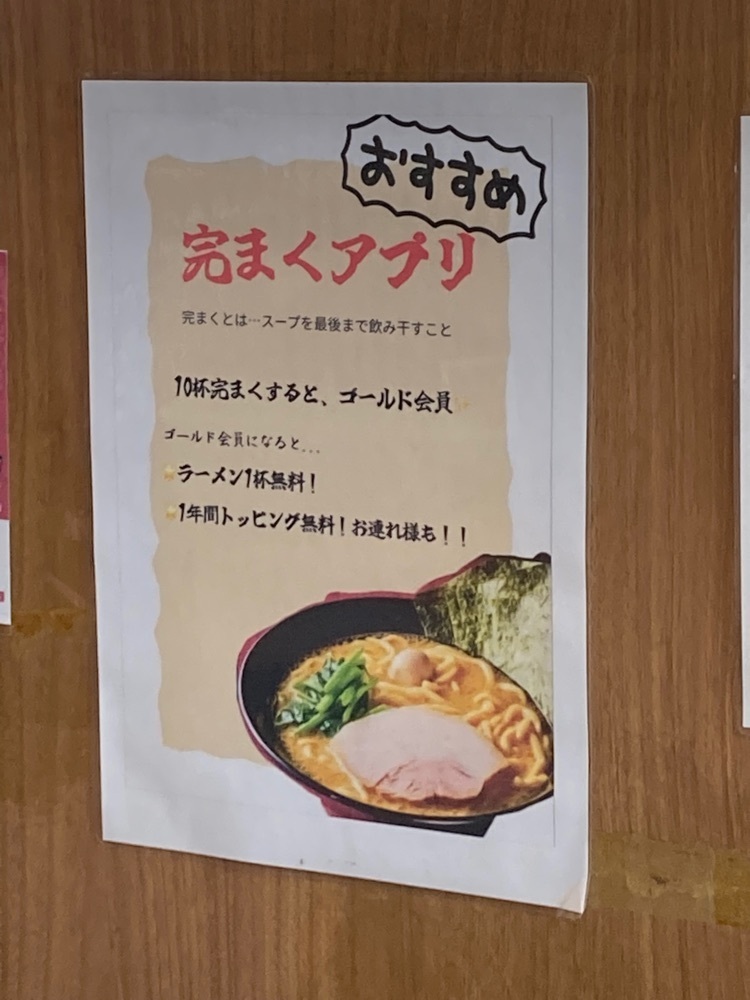 おすすめ
完まくアプリ
完まくとは…スープを最後まで飲み干すこと
10杯完まくすると、ゴールド会員✨
ゴールド会員になると...
⭐ラーメン1杯無料！
⭐1年間トッピング無料！お連れ様も！！